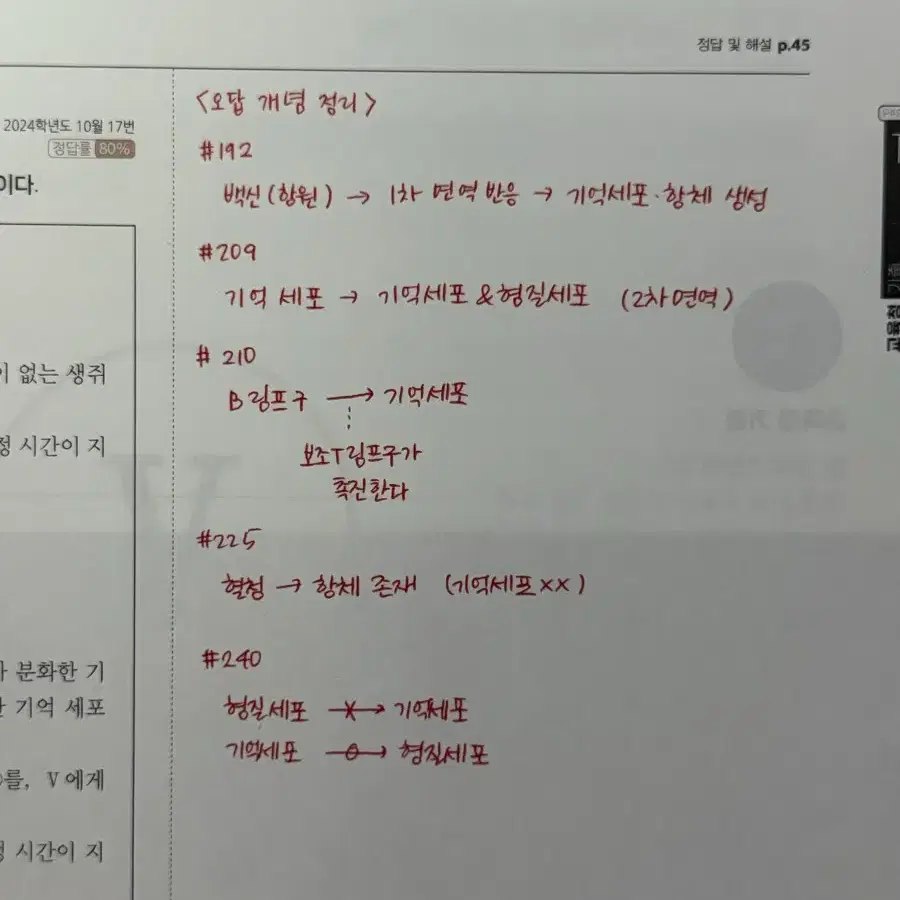 정답 및 해설 p.45
2024학년도 10월 17번
정답률 80%
이다.
이 없는 생쥐
정 시간이 지
분화한 기
기억 세포
를, V에게
정 시간이 지
<오답 개념 정리>
#192
백신(항원) → 1차 면역반응 → 기억세포·항체 생성
#209
기억 세포 → 기억세포&형질세포 (2차면역)
# 210
B림프구 → 기억세포
보조T림프구가
촉진한다
#225
혈청 → 항체 존재 (기억세포××)
#240
형질세포 -×→ 기억세포
기억세포 -o→ 형질세포